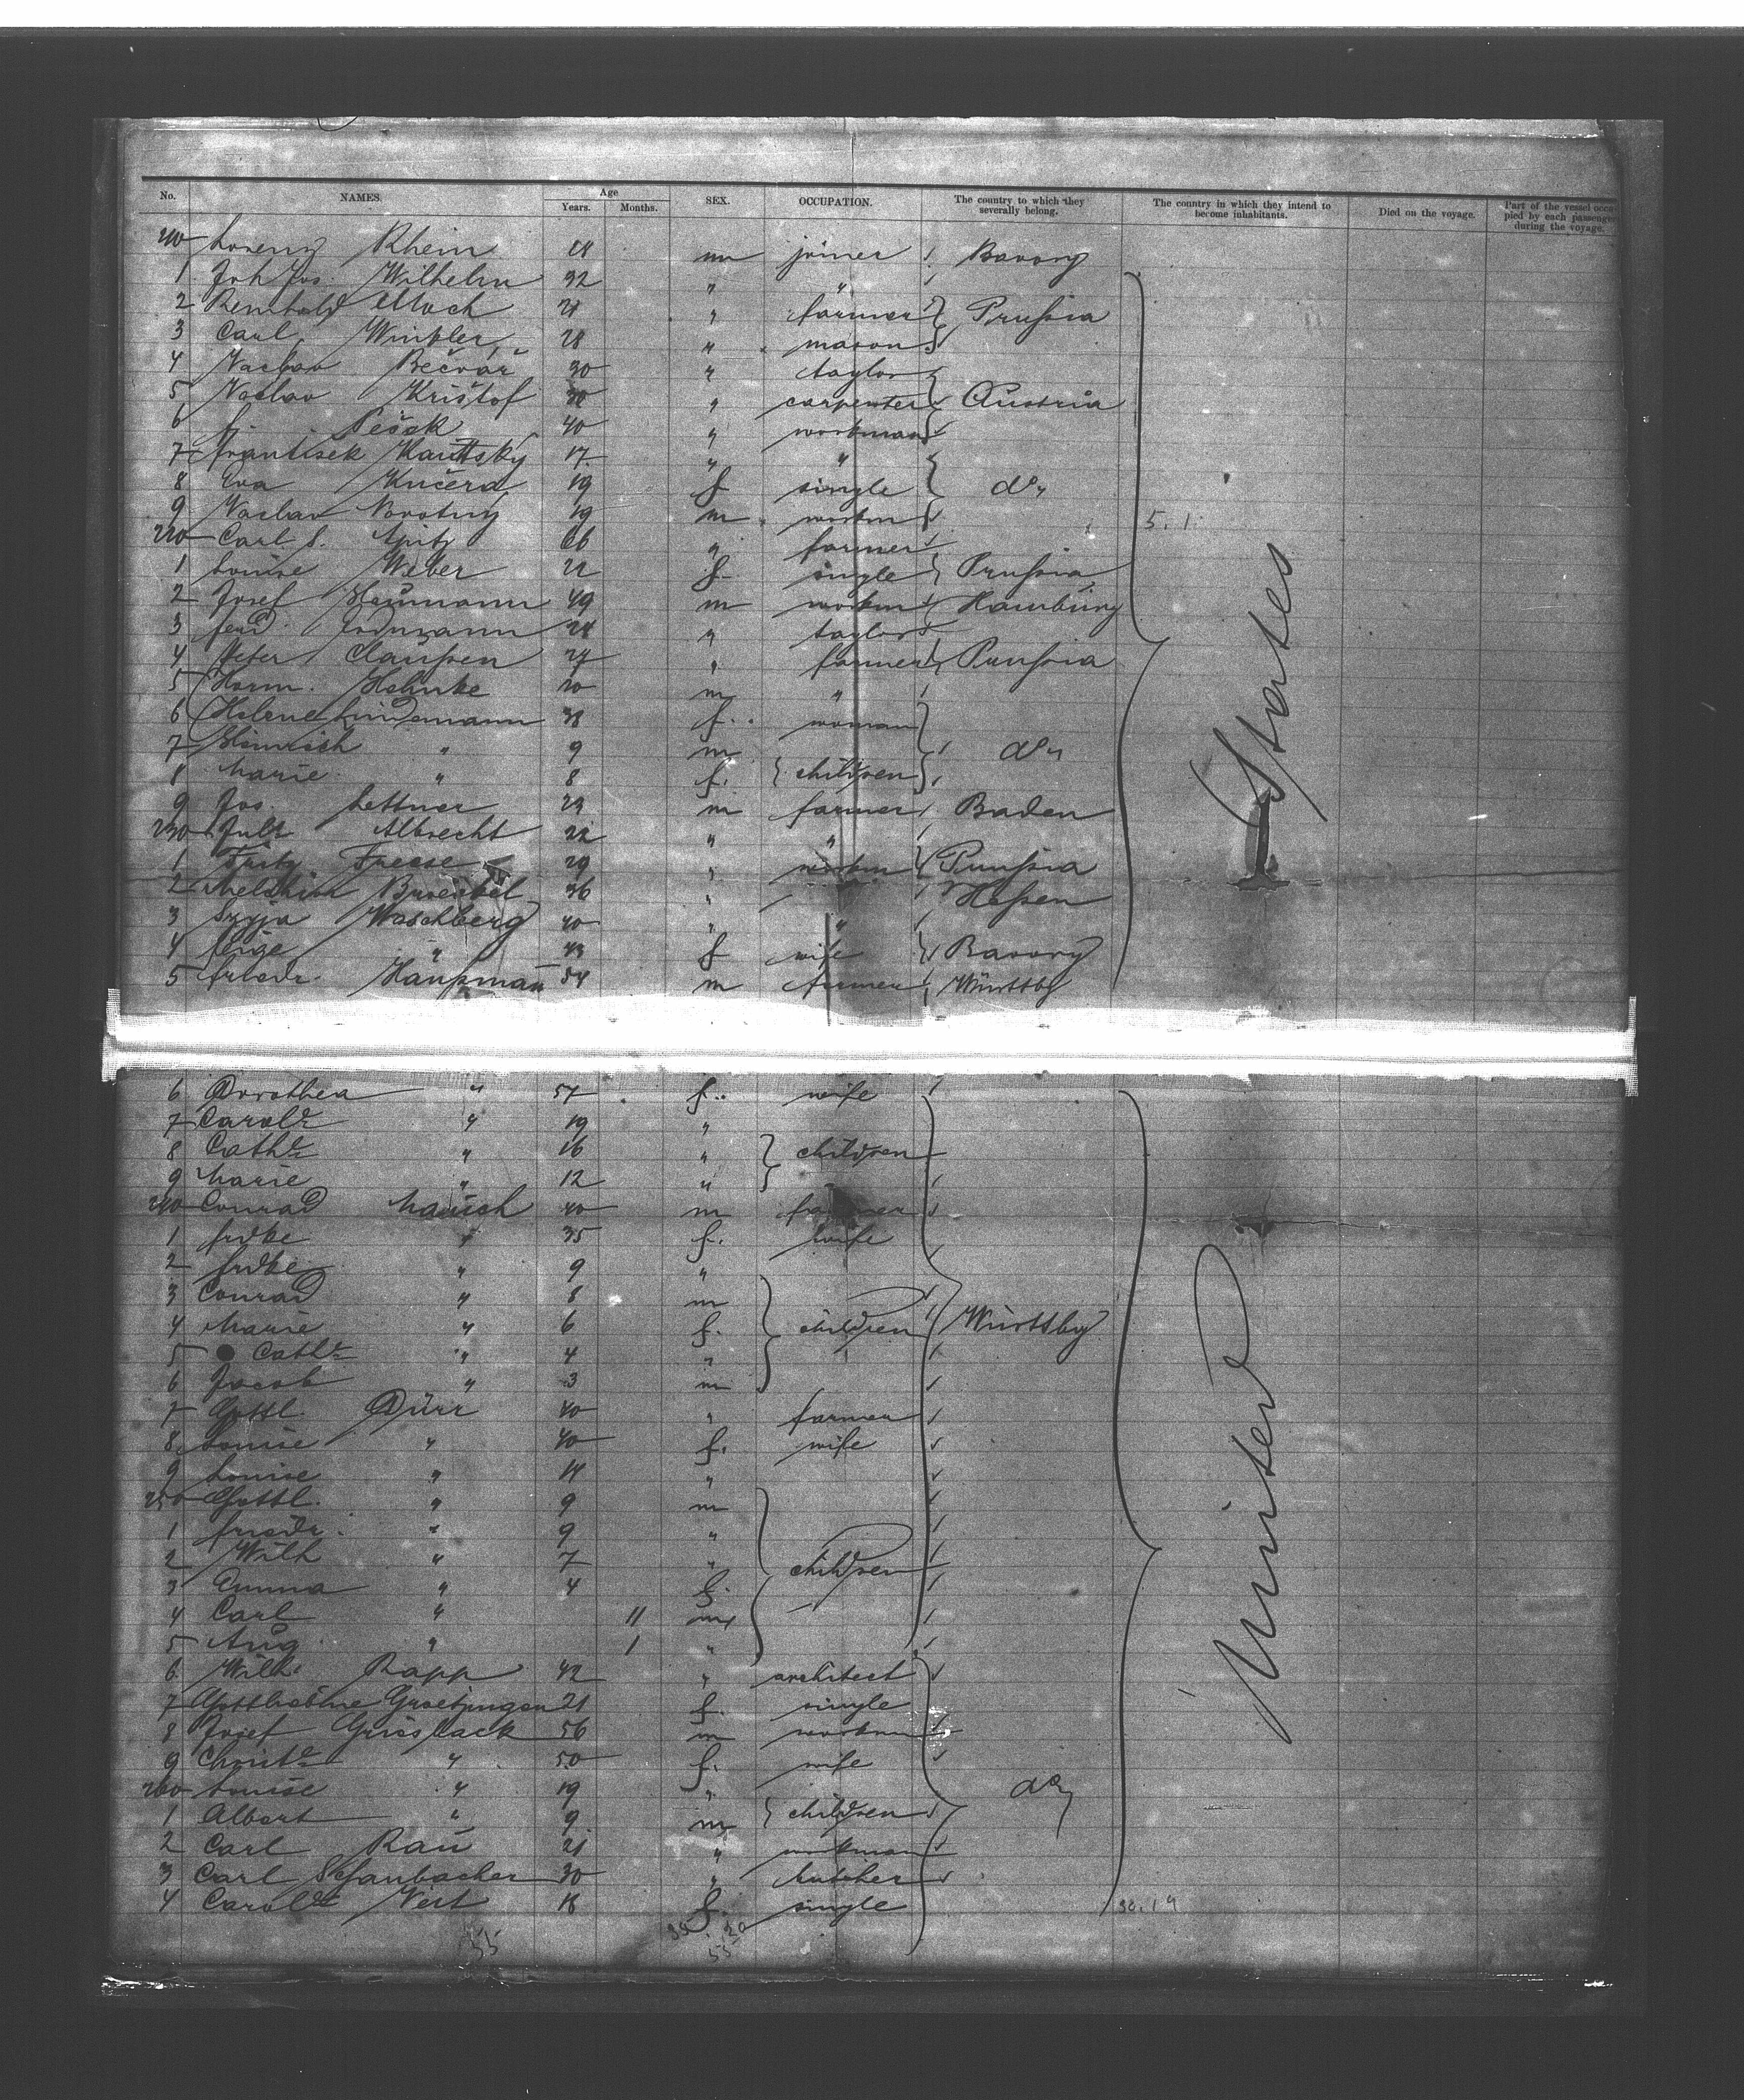 No. NAMES. Age Years. Months. SEX. OCCUPATION. The country to which they severally belong. The country in which they intend to become inhabitants. Died on the voyage. Part of the vessel occupied by each passenger during the voyage.
210 Lorenz Rhein m joiner Bavory
1 Joh Jos Wilhelm 32 " "
2 Reinhold Moch 21 " farmer Prussia
3 Carl Winkler 28 " mason
4 Vaclav Bečvář 30 " taylor
5 Vaclav Krištof 30 " carpenter Austria
6 Pešak 40 " workman
7 Frantisek Kautsky 17 " "
8 Eva Kučera 19 f single do
9 Vaclav Novotny 19 m workm
220 Carl S. 66 " farmer
1 Louise Weber 22 f single Prussia
2 Josef Heumann 49 m workm Hamburg
3 Ferd. Erdmann 24 " taylor
4 Peter Claussen 27 " farmer Prussia
5 Herm. Hahnke 20 m "
6 Helene Lindemann 38 f. woman
7 Hinrich " 9 m do
8 Marie " 8 f. children
9 Jos. Lettner 23 m farmer Baden
230 Juls Albrecht 22 " "
1 Freese 29 " workm Prussia
2 Melchior 36 " Hessen
3 Szyja Waschberg 40 " "
4 Feige " 43 f wife Bavory
5 Friedr. Haussmann 54 m farmer Württbg
6 Dorothea " 57 f. wife
7 Carole " 19 "
8 Cathe " 16 " children
9 Marie " 12 "
240 Conrad Mauch 40 m farmer
1 Frdke " 35 f. wife
2 Frdke " 9 "
3 Conrad " 8 m
4 Marie " 6 f. children Württbg
5 Cathe " 4 "
6 Jacob " 3 m
7 Gottl. Dürr 40 " farmer
8 Louise " 40 f. wife
9 Louise " 14 "
250 Gottl. " 9 m
1 Friedr. " 9 "
2 Wilh " 7 " children
3 Emma " 4 f.
4 Carl " 11 m
5 Aug " 1 "
6 Wilh. Rapp 42 " architect
7 Gottliebine Groetzinger 21 f. single
8 Josef Griesback 56 m workm
9 Christe " 50 f. wife
260 Louise " 19 " do
1 Albert " 9 m children
2 Carl Rau 21 " workman
3 Carl Schaubacher 30 " butcher
4 Carole Veit 18 f. single
United States
5.1.
30.19
55
55